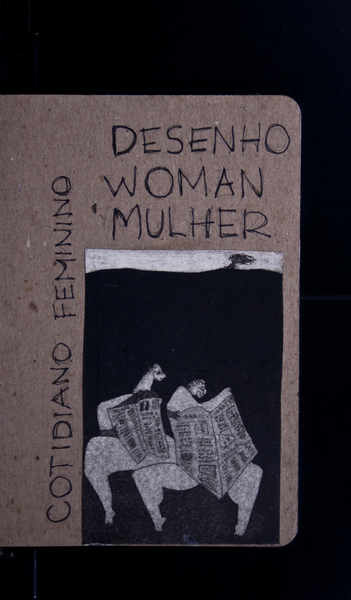 DESENHO
WOMAN
MULHER
COTIDIANO FEMININO